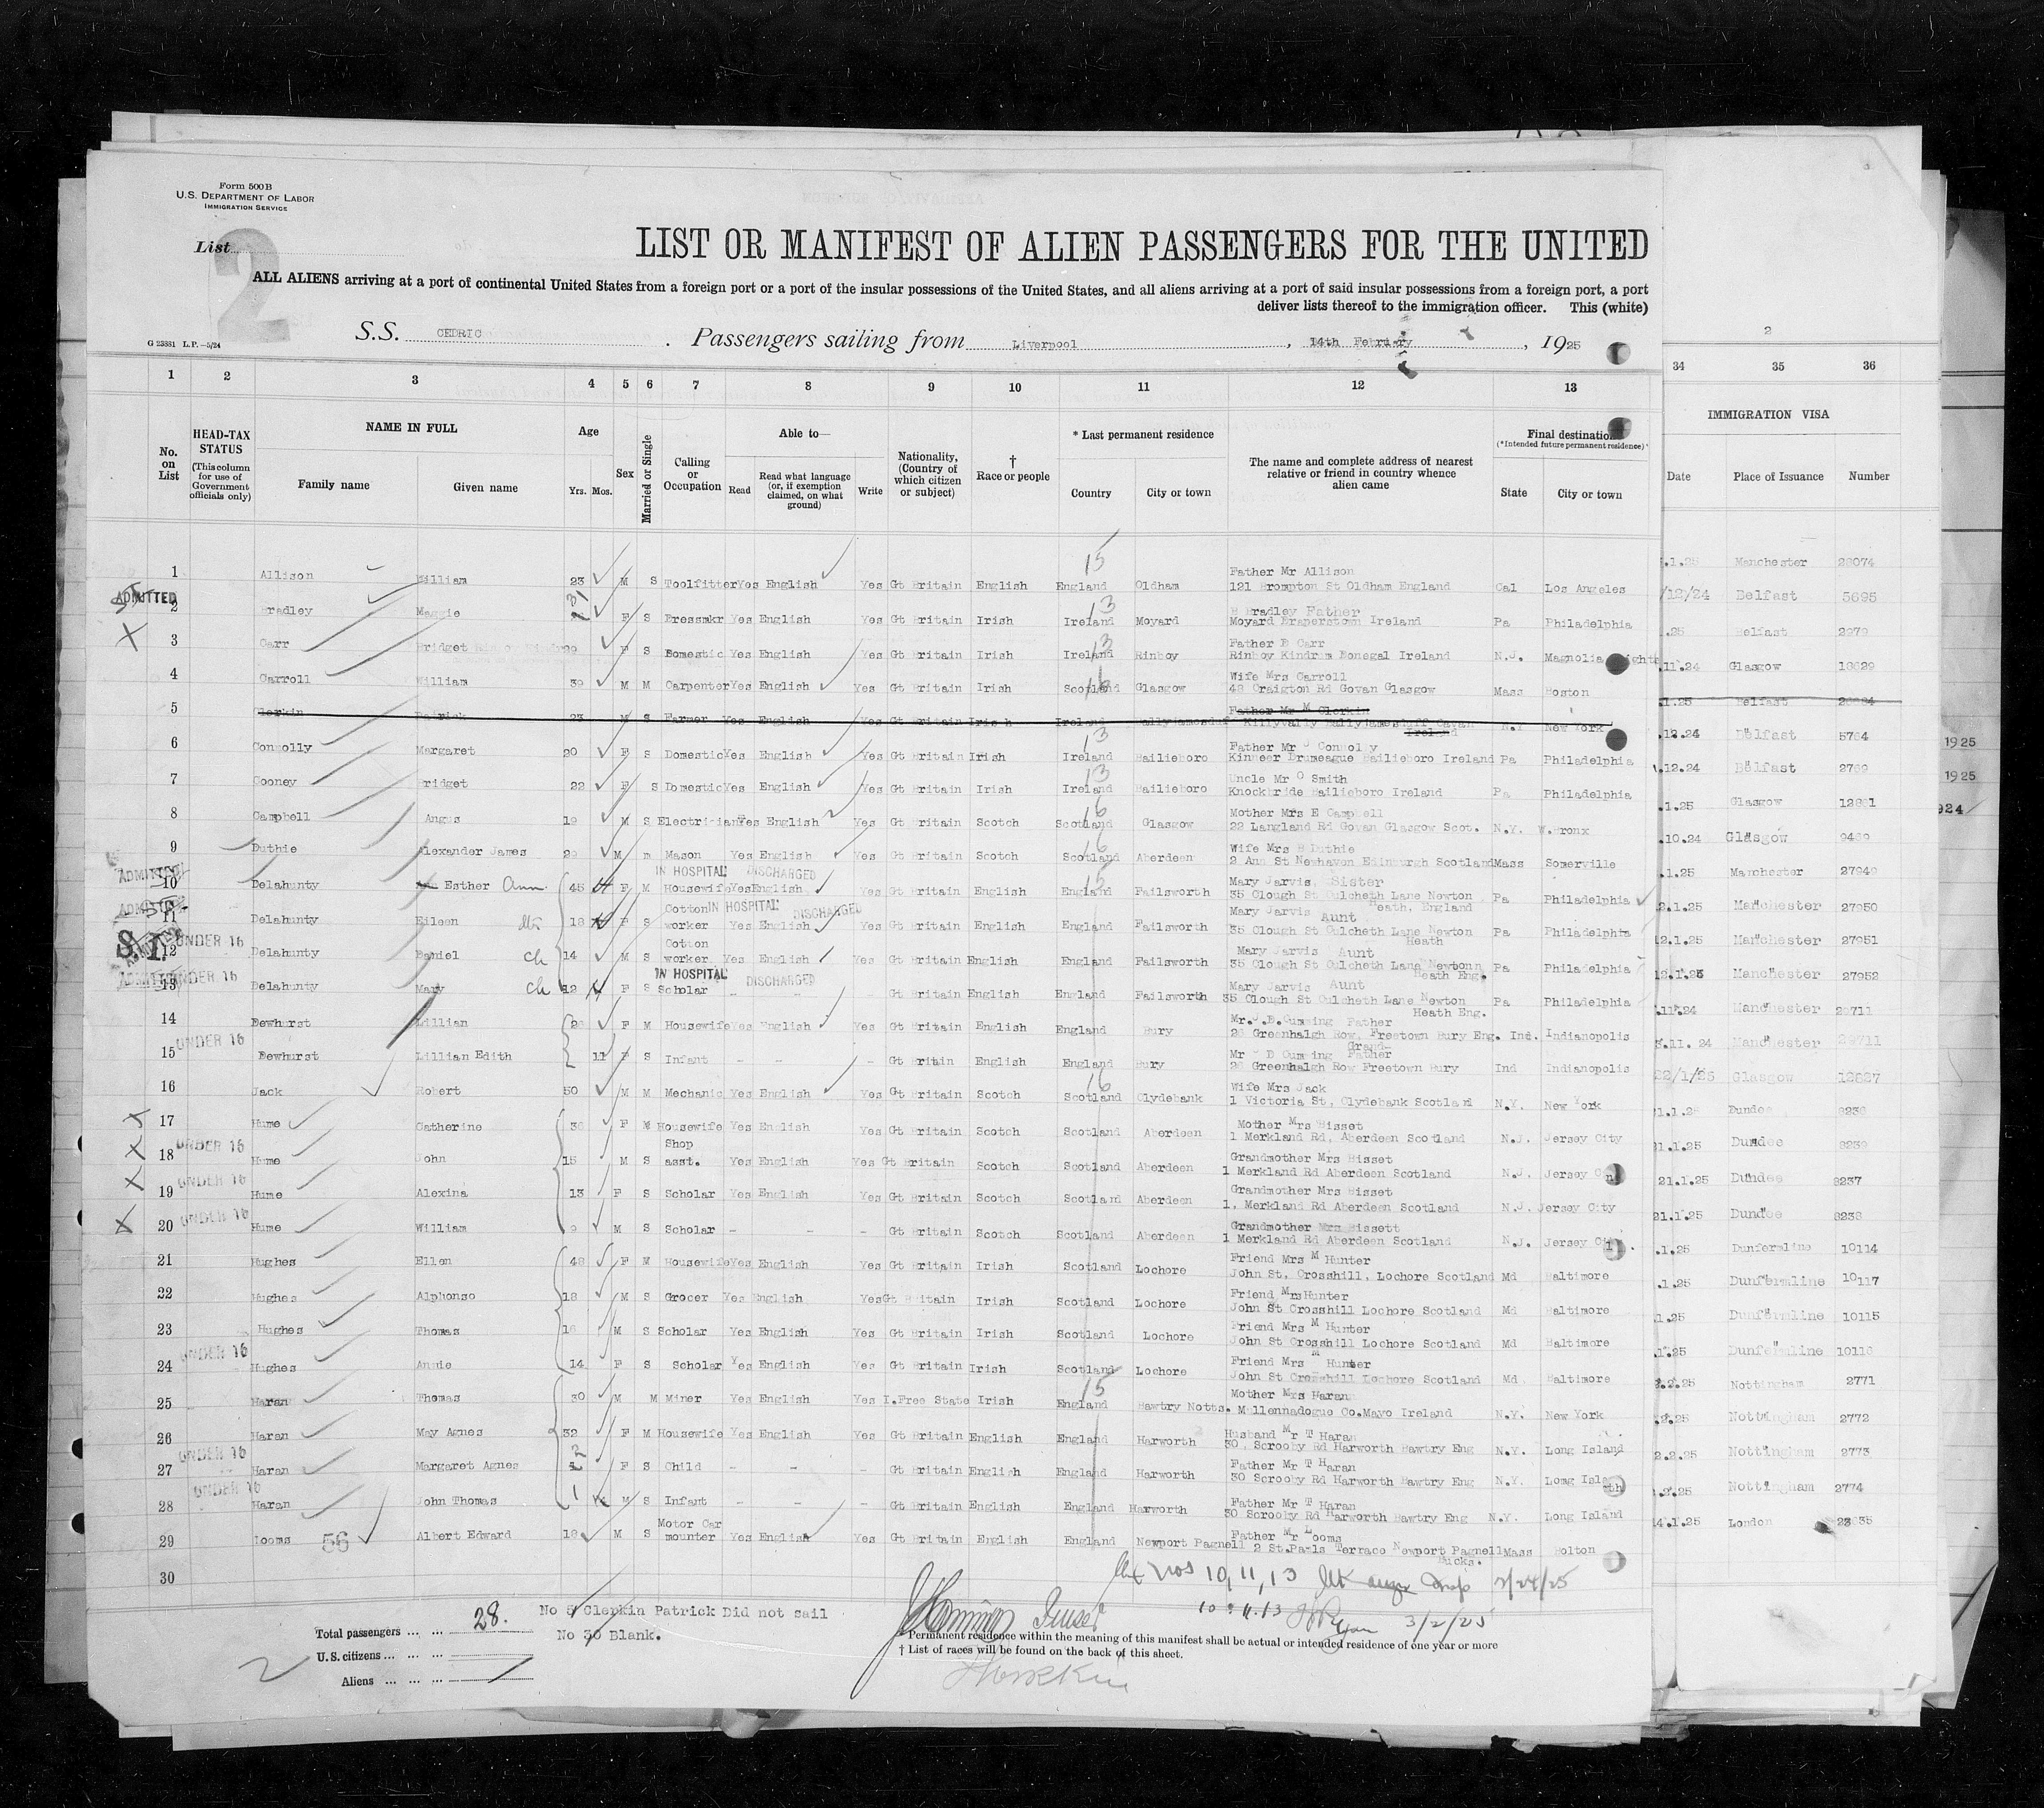 Form 500B
U.S. DEPARTMENT OF LABOR
IMMIGRATION SERVICE
List 2
LIST OR MANIFEST OF ALIEN PASSENGERS FOR THE UNITED
ALL ALIENS arriving at a port of continental United States from a foreign port or a port of the insular possessions of the United States, and all aliens arriving at a port of said insular possessions from a foreign port, a port
deliver lists thereof to the immigration officer. This (white)
S.S. CEDRIC . Passengers sailing from Liverpool , 14th February , 1925
G 23881 L.P.—5/24
2
1 2 3 4 5 6 7 8 9 10 11 12 13 34 35 36
No. on List
HEAD-TAX STATUS (This column for use of Government officials only)
NAME IN FULL Family name Given name
Age Yrs. Mos.
Sex
Married or Single
Calling or Occupation
Able to— Read Read what language (or, if exemption claimed, on what ground) Write
Nationality, (Country of which citizen or subject)
† Race or people
* Last permanent residence Country City or town
The name and complete address of nearest relative or friend in country whence alien came
Final destination (*Intended future permanent residence) State City or town
IMMIGRATION VISA Date Place of Issuance Number
1 Allison William 23 M S Toolfitter Yes English Yes Gt Britain English England Oldham Father Mr Allison 121 Brompton St Oldham England Cal Los Angeles .1.25 Manchester 28074
ADMITTED 2 Bradley Maggie F S Dressmkr Yes English Yes Gt Britain Irish Ireland Moyard B Bradley Father Moyard Draperstown Ireland Pa Philadelphia /12/24 Belfast 5695
3 Carr Bridget F S Domestic Yes English Yes Gt Britain Irish Ireland Rinboy Father B Carr Rinboy Kindrum Donegal Ireland N.J. Magnolia .25 Belfast 2979
4 Carroll William 39 M M Carpenter Yes English Yes Gt Britain Irish Scotland Glasgow Wife Mrs Carroll 48 Craigton Rd Govan Glasgow Mass Boston .11.24 Glasgow 18629
5 Clerkin Patrick 23 M S Farmer Yes English Yes Gt Britain Irish Ireland Father Mr M Clerkin Ireland N.Y New York .1.25 Belfast
6 Connolly Margaret 20 F S Domestic Yes English Yes Gt Britain Irish Ireland Bailieboro Father Mr J Connolly Kinneer Drumeague Bailieboro Ireland Pa Philadelphia .12.24 Belfast 5764
7 Cooney Bridget 22 F S Domestic Yes English Yes Gt Britain Irish Ireland Bailieboro Uncle Mr O Smith Knockbride Bailieboro Ireland Pa Philadelphia .12.24 Belfast 2769
8 Campbell Angus 19 M S Electrician Yes English Yes Gt Britain Scotch Scotland Glasgow Mother Mrs E Campbell 22 Langland Rd Govan Glasgow Scot. N.Y. W.Bronx .1.25 Glasgow 12861
9 Duthie Alexander James 29 M m Mason Yes English Yes Gt Britain Scotch Scotland Aberdeen Wife Mrs B Duthie 2 Ann St Newhaven Edinburgh Scotland Mass Somerville .10.24 Glasgow 9469
ADMITTED 10 Delahunty Esther Ann 45 F M Housewife IN HOSPITAL DISCHARGED Yes English Yes Gt Britain English England Failsworth Mary Jarvis Sister 35 Clough St Culcheth Lane Newton Heath, England Pa Philadelphia .1.25 Manchester 27949
ADMITTED 11 Delahunty Eileen 18 F S Cotton worker IN HOSPITAL DISCHARGED Yes English Yes Gt Britain English England Failsworth Mary Jarvis Aunt 35 Clough St Culcheth Lane Newton Heath Pa Philadelphia 2.1.25 Manchester 27950
S.I. ADMITTED UNDER 16 12 Delahunty Daniel ch 14 M S Cotton worker Yes English Yes Gt Britain English England Failsworth Mary Jarvis Aunt 35 Clough St Culcheth Lane Newton Heath Eng. Pa Philadelphia 12.1.25 Manchester 27951
ADMITTED UNDER 16 13 Delahunty Mary ch 12 F S Scholar IN HOSPITAL DISCHARGED - - - Gt Britain English England Failsworth Mary Jarvis Aunt 35 Clough St Culcheth Lane Newton Heath Eng. Pa Philadelphia 12.1.25 Manchester 27952
14 Dewhurst Lillian F M Housewife Yes English Yes Gt Britain English England Bury Mr.J.D.Cumming Father 26 Greenhalgh Row, Freetown Bury Eng. Ind. Indianapolis .11.24 Manchester 28711
UNDER 16 15 Dewhurst Lillian Edith 11 F S Infant - - - Gt Britain English England Bury Mr J D Cumming Grand- Father 26 Greenhalgh Row Freetown Bury Ind Indianapolis .11.24 Manchester 28711
16 Jack Robert 50 M M Mechanic Yes English Yes Gt Britain Scotch Scotland Clydebank Wife Mrs Jack 1 Victoria St, Clydebank Scotland N.Y. New York 22/1/25 Glasgow 12827
17 Hume Catherine 36 F M Housewife Yes English Yes Gt Britain Scotch Scotland Aberdeen Mother Mrs Bisset 1 Merkland Rd, Aberdeen Scotland N.J. Jersey City 21.1.25 Dundee 8236
UNDER 16 18 Hume John 15 M S Shop asst. Yes English Yes Gt Britain Scotch Scotland Aberdeen Grandmother Mrs Bisset 1 Merkland Rd Aberdeen Scotland N.J. Jersey 21.1.25 Dundee 8239
UNDER 16 19 Hume Alexina 13 F S Scholar Yes English Yes Gt Britain Scotch Scotland Aberdeen Grandmother Mrs Bisset 1, Merkland Rd Aberdeen Scotland N.J. Jersey City 21.1.25 Dundee 8237
UNDER 16 20 Hume William 9 M S Scholar - - - Gt Britain Scotch Scotland Aberdeen Grandmother Mrs Bissett 1 Merkland Rd Aberdeen Scotland N.J. Jersey City 21.1.25 Dundee 8238
21 Hughes Ellen 48 F M Housewife Yes English Yes Gt Britain Irish Scotland Lochore Friend Mrs M Hunter John St, Crosshill, Lochore Scotland Md Baltimore .1.25 Dunfermline 10114
22 Hughes Alphonso 18 M S Grocer Yes English Yes Gt Britain Irish Scotland Lochore Friend Mrs Hunter John St Crosshill Lochore Scotland Md Baltimore .1.25 Dunfermline 10117
23 Hughes Thomas 16 M S Scholar Yes English Yes Gt Britain Irish Scotland Lochore Friend Mrs M Hunter John St Crosshill Lochore Scotland Md Baltimore .1.25 Dunfermline 10115
UNDER 16 24 Hughes Annie 14 F S Scholar Yes English Yes Gt Britain Irish Scotland Lochore Friend Mrs M Hunter John St Crosshill Lochore Scotland Md Baltimore .1.25 Dunfermline 10116
25 Haran Thomas 30 M M Miner Yes English Yes I.Free State Irish England Bawtry Notts. Mother Mrs Haran Mullennadogue Co.Mayo Ireland N.Y. New York .2.25 Nottingham 2771
26 Haran May Agnes 32 F M Housewife Yes English Yes Gt Britain English England Harworth Husband Mr T Haran 30, Scrooby Rd Harworth Bawtry Eng N.Y. Long Island .2.25 Nottingham 2772
UNDER 16 27 Haran Margaret Agnes 2 F S Child - - - Gt Britain English England Harworth Father Mr T Haran 30 Scrooby Rd Harworth Bawtry Eng N.Y. Long Island 2.2.25 Nottingham 2773
UNDER 16 28 Haran John Thomas 1 M S Infant - - - Gt Britain English England Harworth Father Mr T Haran 30 Scrooby Rd Harworth Bawtry Eng N.Y. Long Island .2.25 Nottingham 2774
29 Looms 56 Albert Edward 18 M S Motor Car mounter Yes English Yes Gt Britain English England Newport Pagnell Father Mr Looms 2 St.Pauls Terrace Newport Pagnell Bucks. Mass Bolton 14.1.25 London 23635
30
nos 10, 11, 13 2/24/25
10 & 11.13 3/2/25
No 5 Clerkin Patrick Did not sail
No 30 Blank.
Total passengers ... ... 28.
U.S. citizens ... ... ...
Aliens ... ... ...
2
* Permanent residence within the meaning of this manifest shall be actual or intended residence of one year or more
† List of races will be found on the back of this sheet.
1925
1925
924